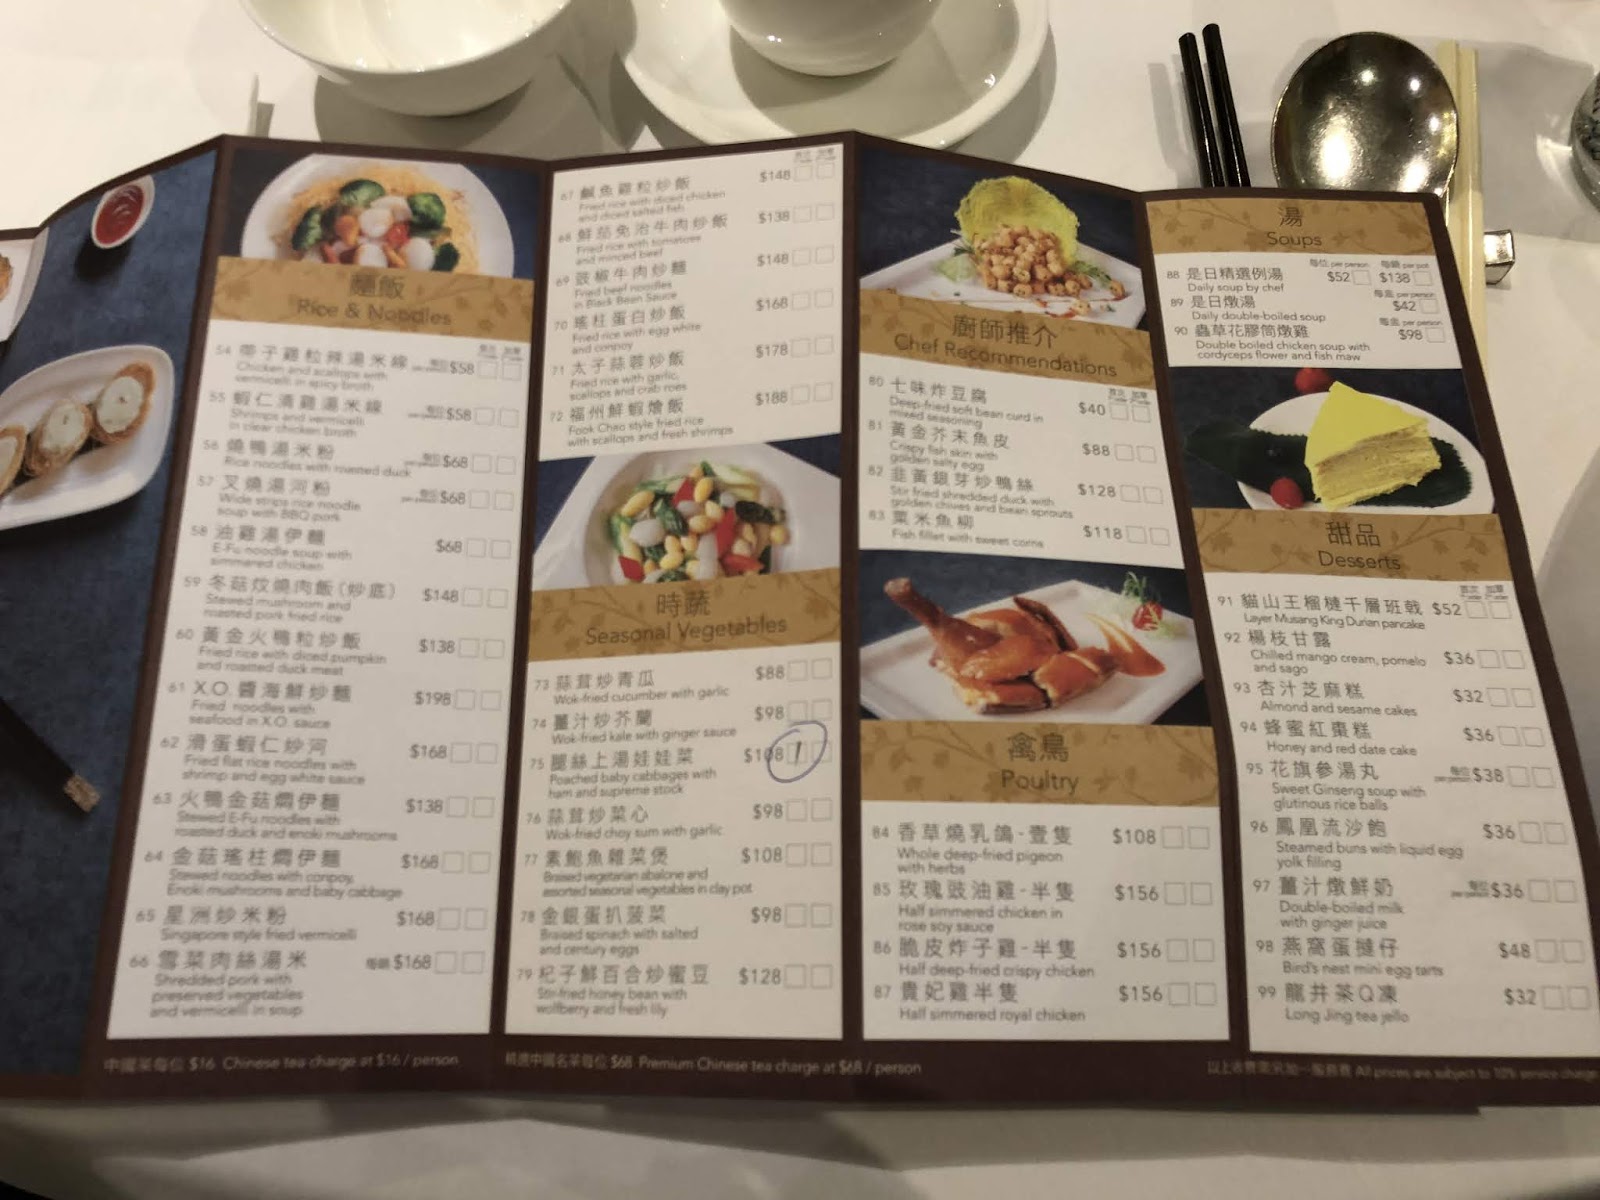 麵飯
Rice & Noodles
54 帶子雞粒辣湯米線 每位 per person $58
Chicken and scallops with
vermicelli in spicy broth
55 蝦仁清雞湯米線 每位 per person $58
Shrimps and vermicelli
in clear chicken broth
56 燒鴨湯米粉 每位 per person $68
Rice noodles with roasted duck
57 叉燒湯河粉 每位 per person $68
Wide strips rice noodle
soup with BBQ pork
58 油雞湯伊麵 $68
E-Fu noodle soup with
simmered chicken
59 冬菇炆燒肉飯(炒底) $148
Stewed mushroom and
roasted pork fried rice
60 黃金火鴨粒炒飯 $138
Fried rice with diced pumpkin
and roasted duck meat
61 X.O.醬海鮮炒麵 $198
Fried noodles with
seafood in X.O. sauce
62 滑蛋蝦仁炒河 $168
Fried flat rice noodles with
shrimp and egg white sauce
63 火鴨金菇燜伊麵 $138
Stewed E-Fu noodles with
roasted duck and enoki mushrooms
64 金菇瑤柱燜伊麵 $168
Stewed noodles with conpoy,
Enoki mushrooms and baby cabbage
65 星洲炒米粉 $168
Singapore style fried vermicelli
66 雪菜肉絲湯米 每鍋 $168
Shredded pork with
preserved vegetables
and vermicelli in soup
中國茶每位 $16 Chinese tea charge at $16 / person
首次 加單
67 鹹魚雞粒炒飯 $148
Fried rice with diced chicken
and diced salted fish
68 鮮茄免治牛肉炒飯 $138
Fried rice with tomatoes
and minced beef
69 豉椒牛肉炒麵 $148
Fried beef noodles
in Black Bean Sauce
70 瑤柱蛋白炒飯 $168
Fried rice with egg white
and conpoy
71 太子蒜蓉炒飯 $178
Fried rice with garlic,
scallops and crab roes
72 福州鮮蝦燴飯 $188
Fook Chao style fried rice
with scallops and fresh shrimps
時蔬
Seasonal Vegetables
73 蒜茸炒青瓜 $88
Wok-fried cucumber with garlic
74 薑汁炒芥蘭 $98
Wok-fried kale with ginger sauce
75 腿絲上湯娃娃菜 $108 1
Poached baby cabbages with
ham and supreme stock
76 蒜茸炒菜心 $98
Wok-fried choy sum with garlic
77 素鮑魚雜菜煲 $108
Braised vegetarian abalone and
assorted seasonal vegetables in clay pot
78 金銀蛋扒菠菜 $98
Braised spinach with salted
and century eggs
79 杞子鮮百合炒蜜豆 $128
Stir-fried honey bean with
wolfberry and fresh lily
精選中國名茶每位 $68 Premium Chinese tea charge at $68 / person
廚師推介
Chef Recommendations
首次 加單
80 七味炸豆腐 $40
Deep-fried soft bean curd in
mixed seasoning
81 黃金芥末魚皮 $88
Crispy fish skin with
golden salty egg
82 韭黃銀芽炒鴨絲 $128
Stir fried shredded duck with
golden chives and bean sprouts
83 粟米魚柳 $118
Fish fillet with sweet corns
禽鳥
Poultry
84 香草燒乳鴿-壹隻 $108
Whole deep-fried pigeon
with herbs
85 玫瑰豉油雞-半隻 $156
Half simmered chicken in
rose soy sauce
86 脆皮炸子雞-半隻 $156
Half deep-fried crispy chicken
87 貴妃雞半隻 $156
Half simmered royal chicken
湯
Soups
每位 per person 每鍋 per pot
88 是日精選例湯 $52 $138
Daily soup by chef
每盅 per person
89 是日燉湯 $42
Daily double-boiled soup
每盅 per person
90 蟲草花膠筒燉雞 $98
Double boiled chicken soup with
cordyceps flower and fish maw
甜品
Desserts
首次 加單
91 貓山王榴槤千層班戟 $52
Layer Musang King Durian pancake
92 楊枝甘露 $36
Chilled mango cream, pomelo
and sago
93 杏汁芝麻糕 $32
Almond and sesame cakes
94 蜂蜜紅棗糕 $36
Honey and red date cake
95 花旗參湯丸 每位 per person $38
Sweet Ginseng soup with
glutinous rice balls
96 鳳凰流沙飽 $36
Steamed buns with liquid egg
yolk filling
97 薑汁燉鮮奶 每位 per person $36
Double-boiled milk
with ginger juice
98 燕窩蛋撻仔 $48
Bird's nest mini egg tarts
99 龍井茶Q凍 $32
Long Jing tea jello
以上收費需另加一服務費 All prices are subject to 10% service charge